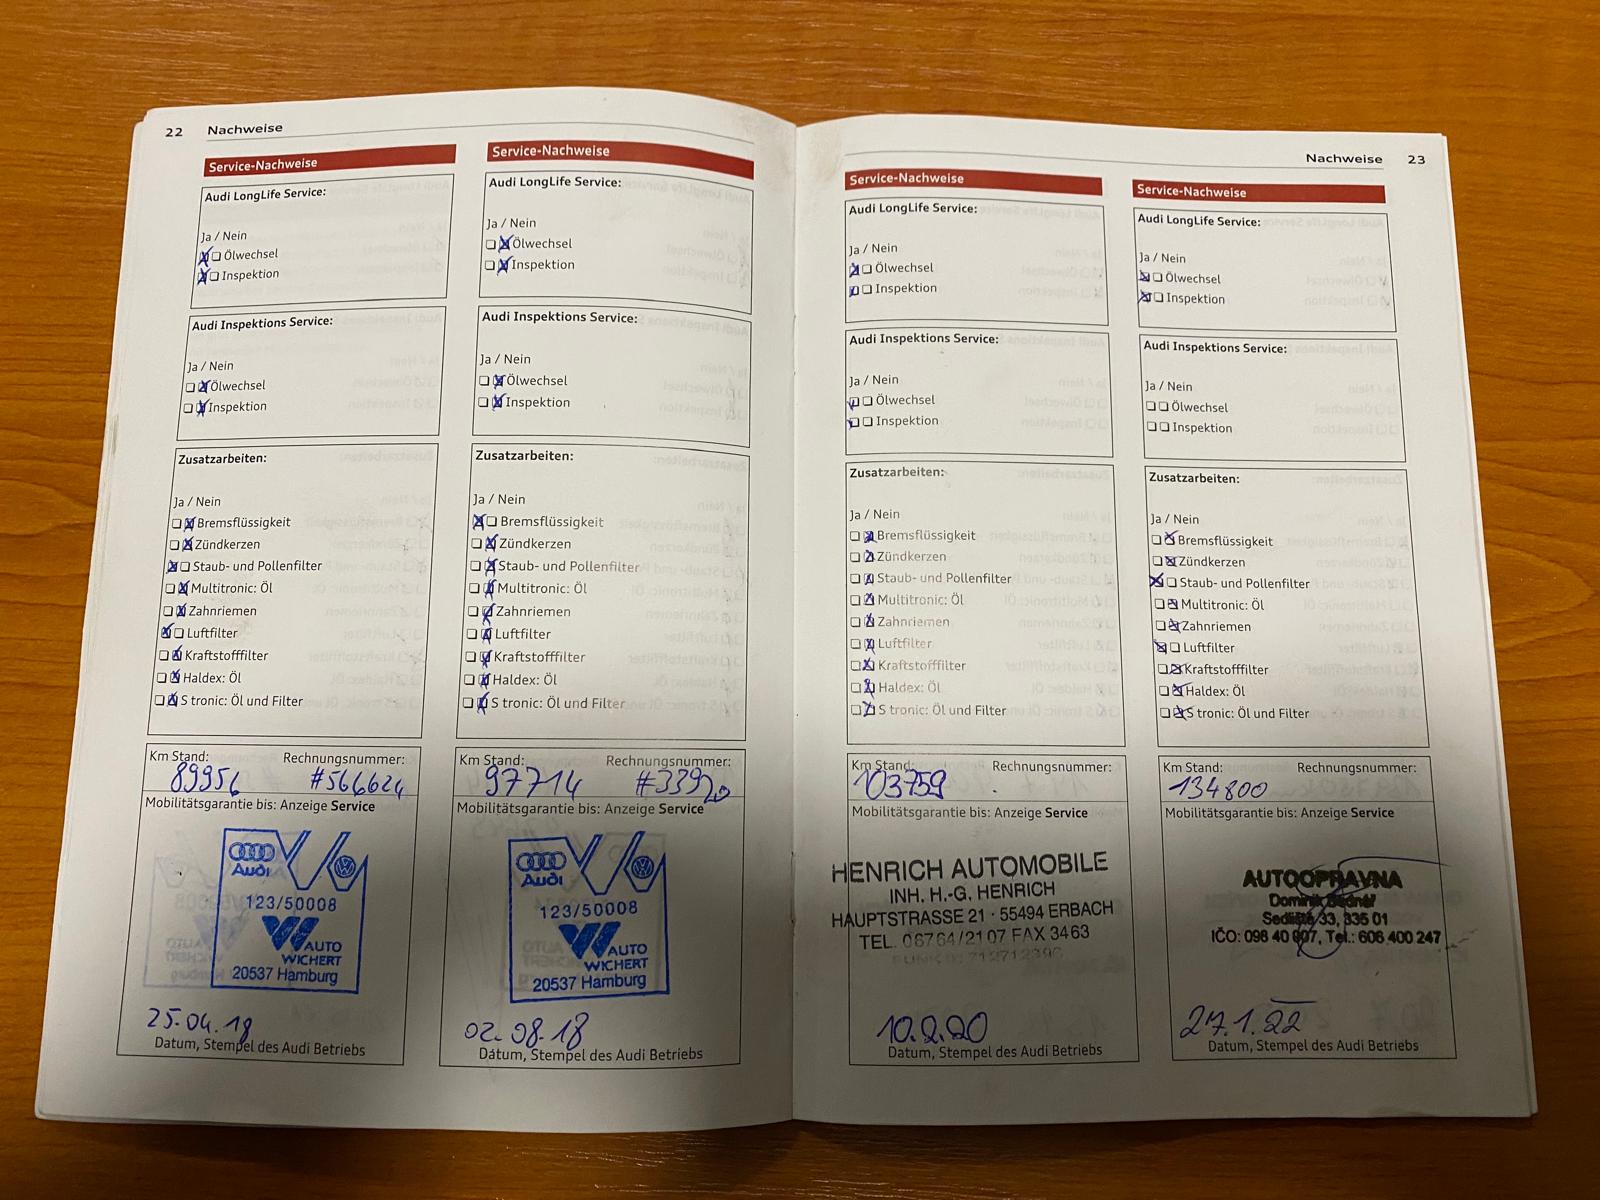 22 Nachweise
Service-Nachweise
Audi LongLife Service:
Ja / Nein
Ölwechsel
Inspektion
Audi Inspektions Service:
Ja / Nein
Ölwechsel
Inspektion
Zusatzarbeiten:
Ja / Nein
Bremsflüssigkeit
Zündkerzen
Staub- und Pollenfilter
Multitronic: Öl
Zahnriemen
Luftfilter
Kraftstofffilter
Haldex: Öl
S tronic: Öl und Filter
Km Stand: Rechnungsnummer:
89956 #566624
Mobilitätsgarantie bis: Anzeige Service
Audi
123/50008
AUTO
WICHERT
20537 Hamburg
25.04.18
Datum, Stempel des Audi Betriebs
Service-Nachweise
Audi LongLife Service:
Ja / Nein
Ölwechsel
Inspektion
Audi Inspektions Service:
Ja / Nein
Ölwechsel
Inspektion
Zusatzarbeiten:
Ja / Nein
Bremsflüssigkeit
Zündkerzen
Staub- und Pollenfilter
Multitronic: Öl
Zahnriemen
Luftfilter
Kraftstofffilter
Haldex: Öl
S tronic: Öl und Filter
Km Stand: Rechnungsnummer:
97714 #33920
Mobilitätsgarantie bis: Anzeige Service
Audi
123/50008
AUTO
WICHERT
20537 Hamburg
02.08.18
Datum, Stempel des Audi Betriebs
Nachweise 23
Service-Nachweise
Audi LongLife Service:
Ja / Nein
Ölwechsel
Inspektion
Audi Inspektions Service:
Ja / Nein
Ölwechsel
Inspektion
Zusatzarbeiten:
Ja / Nein
Bremsflüssigkeit
Zündkerzen
Staub- und Pollenfilter
Multitronic: Öl
Zahnriemen
Luftfilter
Kraftstofffilter
Haldex: Öl
S tronic: Öl und Filter
Km Stand: Rechnungsnummer:
103759
Mobilitätsgarantie bis: Anzeige Service
HENRICH AUTOMOBILE
INH. H.-G. HENRICH
HAUPTSTRASSE 21 · 55494 ERBACH
TEL. 06764/2107 FAX 3463
10.2.20
Datum, Stempel des Audi Betriebs
Service-Nachweise
Audi LongLife Service:
Ja / Nein
Ölwechsel
Inspektion
Audi Inspektions Service:
Ja / Nein
Ölwechsel
Inspektion
Zusatzarbeiten:
Ja / Nein
Bremsflüssigkeit
Zündkerzen
Staub- und Pollenfilter
Multitronic: Öl
Zahnriemen
Luftfilter
Kraftstofffilter
Haldex: Öl
S tronic: Öl und Filter
Km Stand: Rechnungsnummer:
134800
Mobilitätsgarantie bis: Anzeige Service
AUTOOPRAVNA
Dominik Bednář
Sedliště 33, 335 01
IČO: 098 40 907, Tel.: 606 400 247
27.1.22
Datum, Stempel des Audi Betriebs